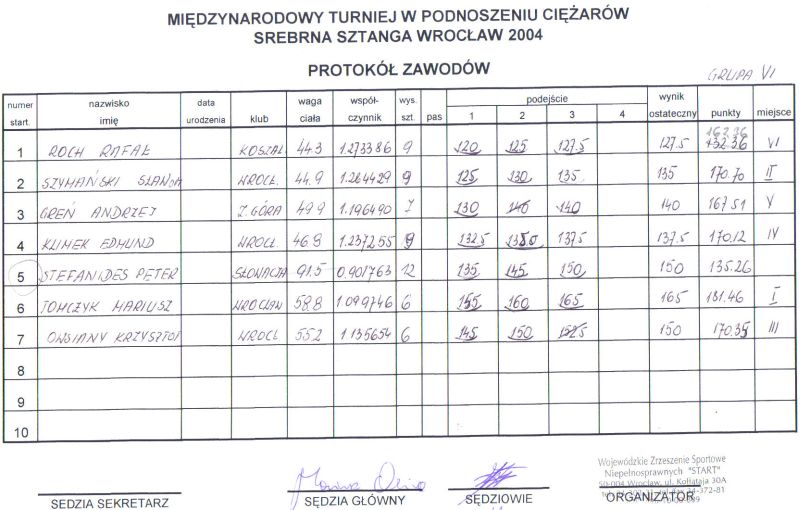 MIĘDZYNARODOWY TURNIEJ W PODNOSZENIU CIĘŻARÓW
SREBRNA SZTANGA WROCŁAW 2004
PROTOKÓŁ ZAWODÓW
GRUPA VI
numer start. nazwisko imię data urodzenia klub waga ciała współczynnik wys. szt. pas podejście 1 2 3 4 wynik ostateczny punkty miejsce
1 ROCH RAFAŁ KOSZAL 44.3 1.273386 9 120 125 127.5 127.5 162.36 VI
2 SZYMAŃSKI WROCŁ. 44.9 1.264429 9 125 130 135 135 170.70 II
3 GREŃ ANDRZEJ Z.GÓRA 49.9 1.196490 7 130 140 140 140 167.51 V
4 KLIMEK EDMUND WROCŁ 46.9 1.237255 9 132.5 137.5 137.5 170.12 IV
5 STEFANIDES PETER SŁOWACJA 91.5 0.901763 12 135 145 150 150 135.26
6 TOMCZYK MARIUSZ WROCŁAW 58.8 1.099746 6 155 160 165 165 181.46 I
7 OWSIANY KRZYSZTOF WROCŁ 55.2 1.135654 6 145 150 152.5 150 170.35 III
8
9
10
Wojewódzkie Zrzeszenie Sportowe
Niepełnosprawnych "START"
50-004 Wrocław, ul. Kołłątaja 30A
SEDZIA SEKRETARZ SĘDZIA GŁÓWNY SĘDZIOWIE ORGANIZATOR